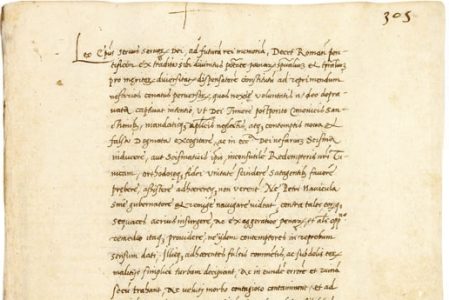 305
Leo Eps servus servor Dei, ad futura rei memoria, Decet Romanū pon-
tificem ex tradita sibi divinitus potete penar spualium et tpralium
pro meritor diversitate dispensatore constitutū ad reprimendum
nefarios conatus perversor, quos noxie voluntatis adeo deprava
vata, captivat intentio, ut Dei Timore postposito Canonicis San-
ctionib, mandatisq Aplicis neglectis, atq contemptis nova et
falsa Dogmata excogitare, ac in Dei nefarium Scisma
inducere, aut Scismaticis ipis, inconsutile Redemptoris nri Tu-
nicam, orthodoxeq fidei unitate scindere satagentib, favere,
prebere, assistere adhaerereq non verent. Ne Petri Navicula
sine gubernatore et remige navigare videat, contra tales eorq
sequaces acrius insurgere, ac exaggeratione penar, et als opp
remedio ita providere, ne ijdem contemptores in reprobum
sensum dati, illisq adhaerentes falsis commetis, ac subdolis eor
malitijs simplice turbam decipiant, ac in eunde errore et ruina
secu trahant, ac veluti morbo contagioso contaminent, et ad